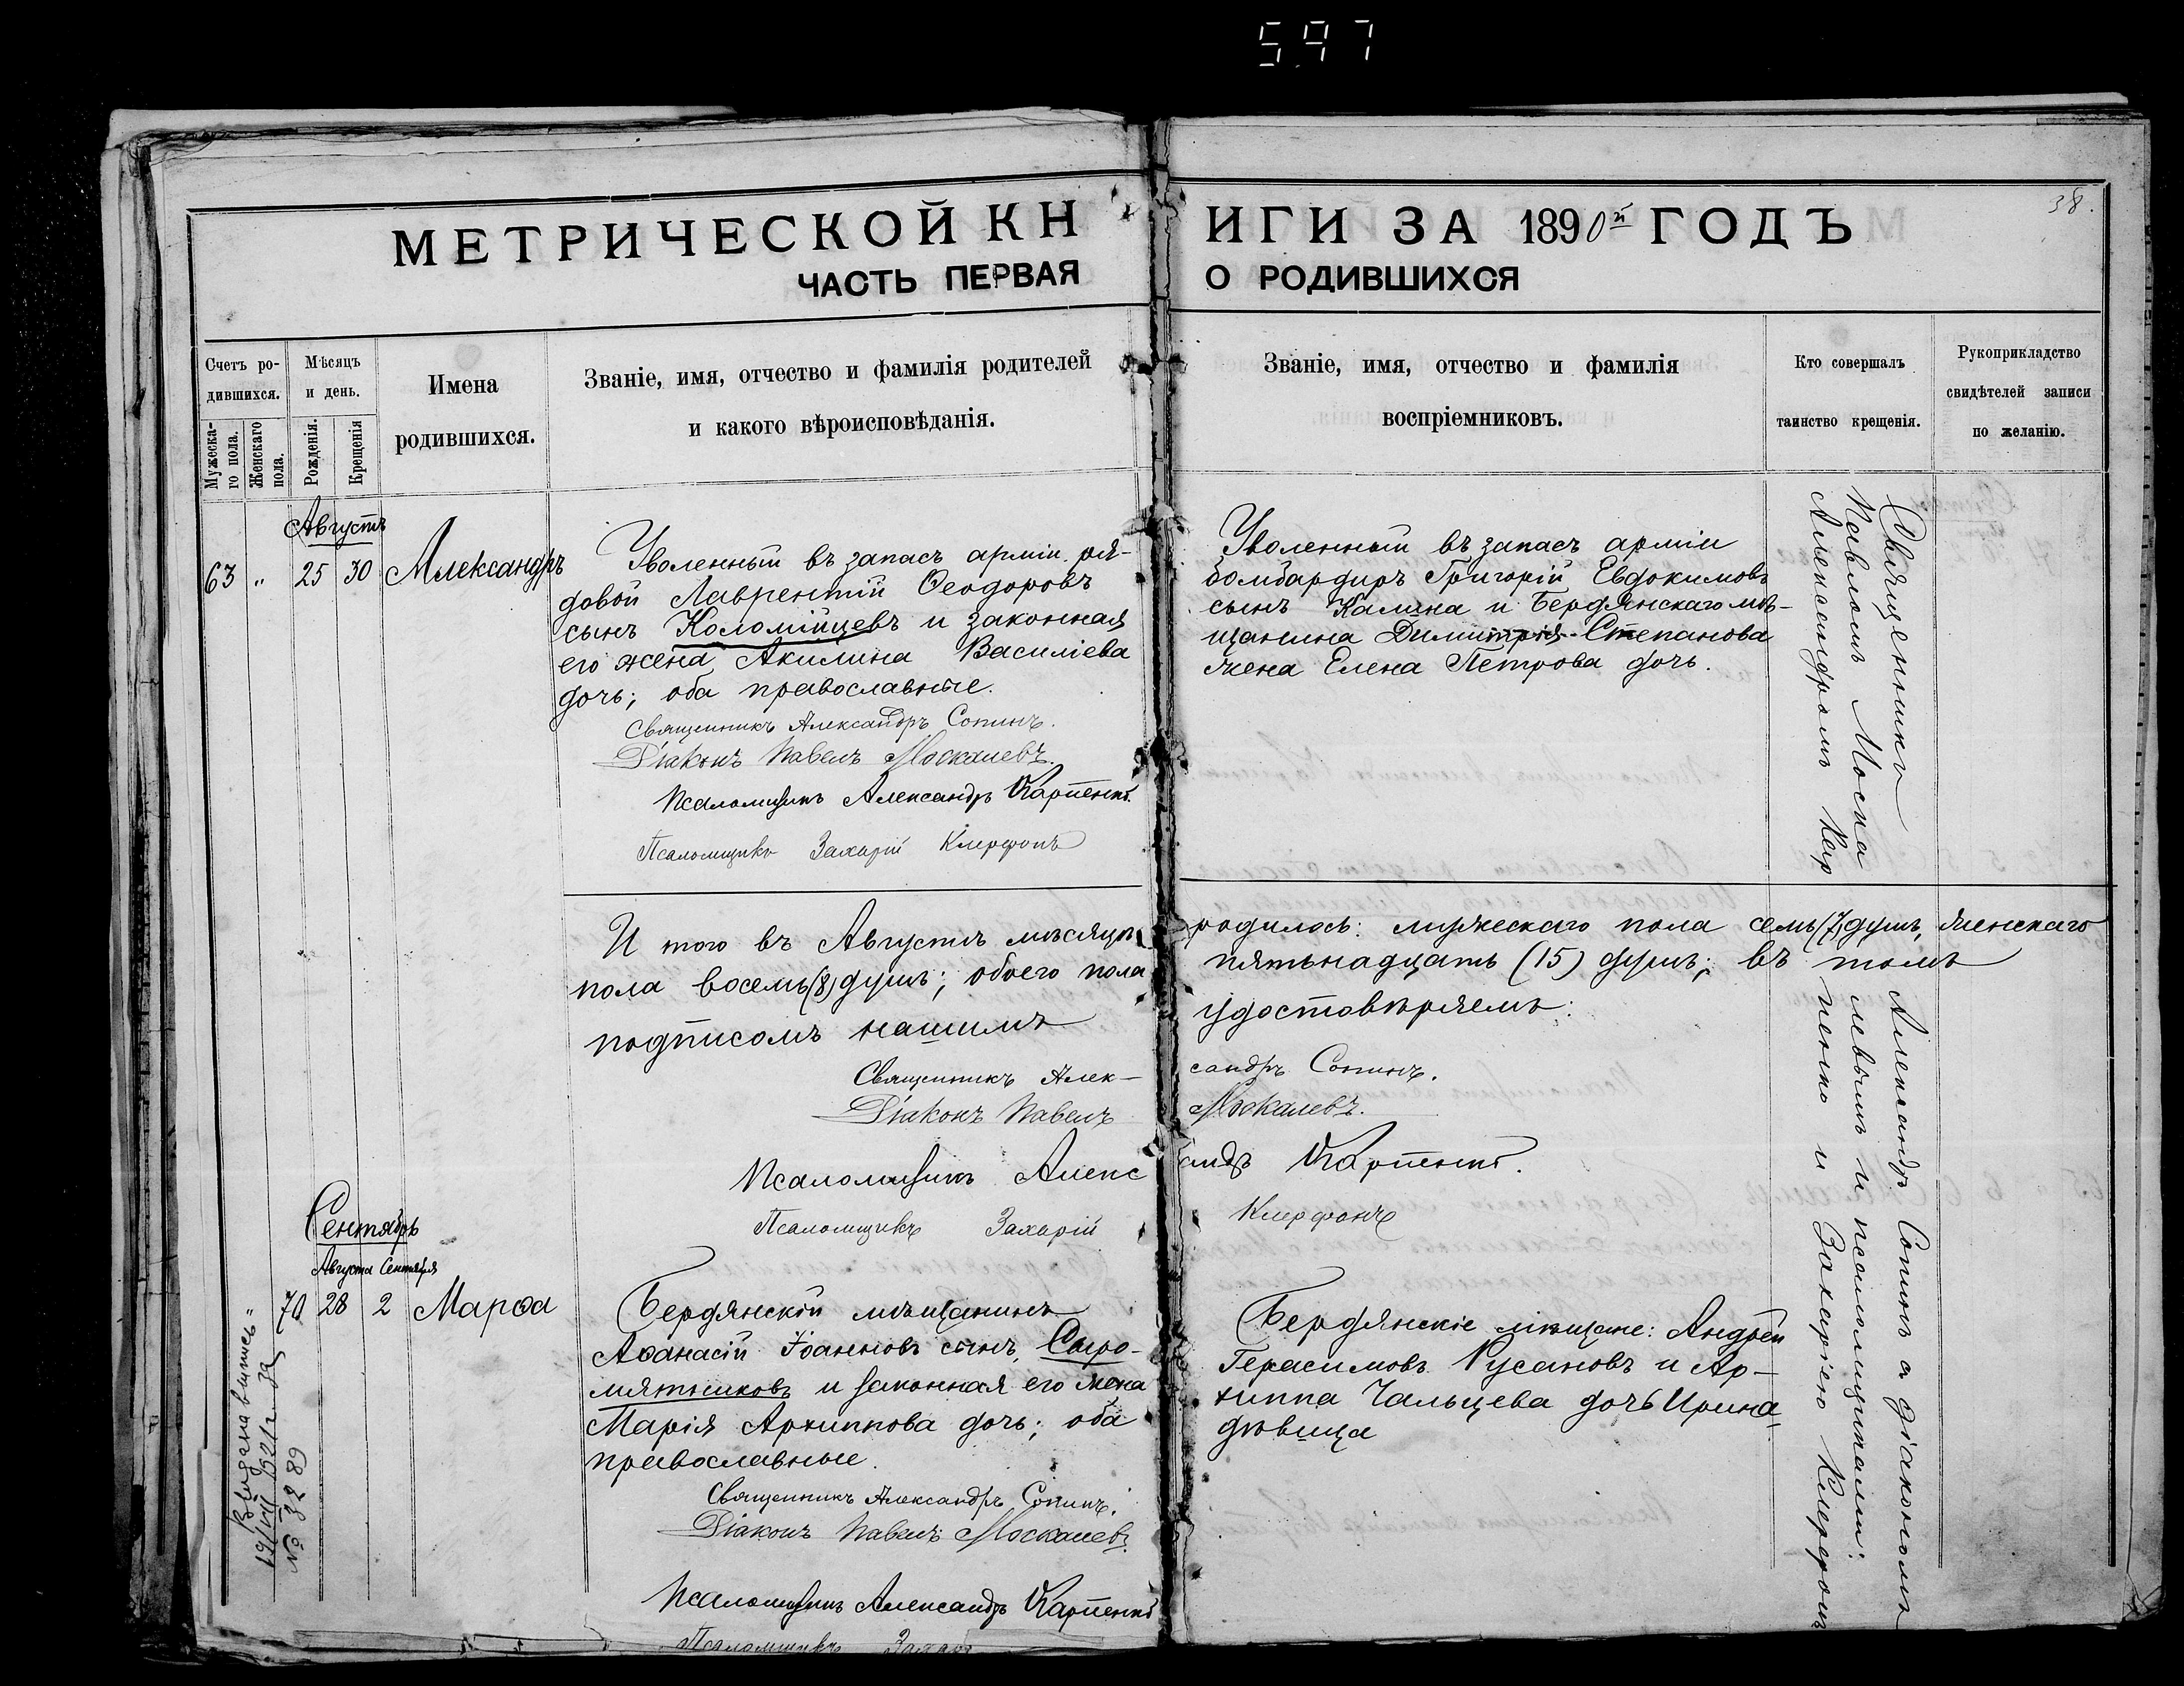 597
38.
МЕТРИЧЕСКОЙ КНИГИ ЗА 1890й ГОДЪ
ЧАСТЬ ПЕРВАЯ О РОДИВШИХСЯ
Счетъ ро-
дившихся.
Мужеска-
го пола.
Женскаго
пола.
Мѣсяцъ
и день.
Рожденія.
Крещенія
Имена
родившихся.
Званіе, имя, отчество и фамилія родителей
и какого вѣроисповѣданія.
Званіе, имя, отчество и фамилія
воспріемниковъ.
Кто совершалъ
таинство крещенія.
Рукоприкладство
свидѣтелей записи
по желанію.
Августъ
63 „ 25 30 Александръ
Уволенный въ запасъ арміи ря-
довой Лаврентій Ѳеодоровъ
сынъ Коломійцевъ и законная
его жена Акилина Василіева
дочь; оба православные.
Священникъ Александръ Сопинъ.
Діаконъ Павелъ Москалевъ.
Псаломщикъ Александръ Карпенко.
Псаломщикъ Захарій Клерфонъ
Уволенный въ запасъ арміи
бомбардиръ Григорій Евдокимовъ
сынъ Калина и Бердянскаго мѣ-
щанина Димитрія Степанова
жена Елена Петрова дочь.
Священникъ Александръ Сопинъ с діакономъ
Павломъ Москалевымъ и псаломщиками:
Александромъ Карпенко и Захаріею Клерфонъ
И того въ Августѣ мѣсяцѣ родилось: мужескаго пола семь (7) душъ, женскаго
пола восемь (8) душъ; обоего пола пятьнадцать (15) душъ; въ томъ
подписомъ нашимъ удостовѣряемъ:
Священникъ Александръ Сопинъ.
Діаконъ Павелъ Москалевъ.
Псаломщикъ Александръ Карпенко.
Псаломщикъ Захарій Клерфонъ
Сентябрь
Августа Сентября
70 28 2 Марѳа
Бердянскій мѣщанинъ
Аѳанасій Іоанновъ сынъ Сыро-
мятниковъ и законная его жена
Марія Архиппова дочь; оба
православные.
Священникъ Александръ Сопинъ.
Діаконъ Павелъ Москалевъ.
Псаломщикъ Александръ Карпенко
Псаломщикъ Захарій
Бердянскіе мѣщане: Андрей
Герасимовъ Русановъ и Ар-
хиппа Чальцева дочь Ирина
дѣвица
Выдана выпись
19/VII 1921 г. За
№ 3289